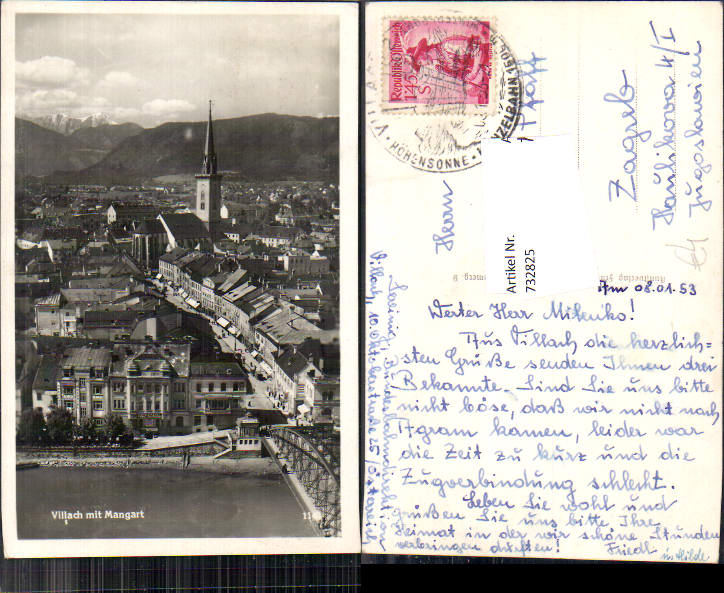 Villach mit Mangart
Republik Österreich
1.45 S
HÖHENSONNE
KANZELBAHN 1500
Herrn
Zagreb
4/I
Jugoslawien
Artikel Nr.
732825
Am 08.01.53
Werter Herr Milenko!
Aus Villach, die herzlich=
sten Grüße senden Ihnen drei
Bekannte. Sind Sie uns bitte
nicht böse, daß wir nicht nach
Agram kamen, leider war
die Zeit zu kurz und die
Zugverbindung schlecht.
Leben Sie wohl und
grüßen Sie uns bitte Ihre
Heimat in der wir schöne Stunden
verbringen durften! Friedl
u. Hilde
Bundesbahndirektion
Villach, 10. Oktoberstraße 25/Österreich